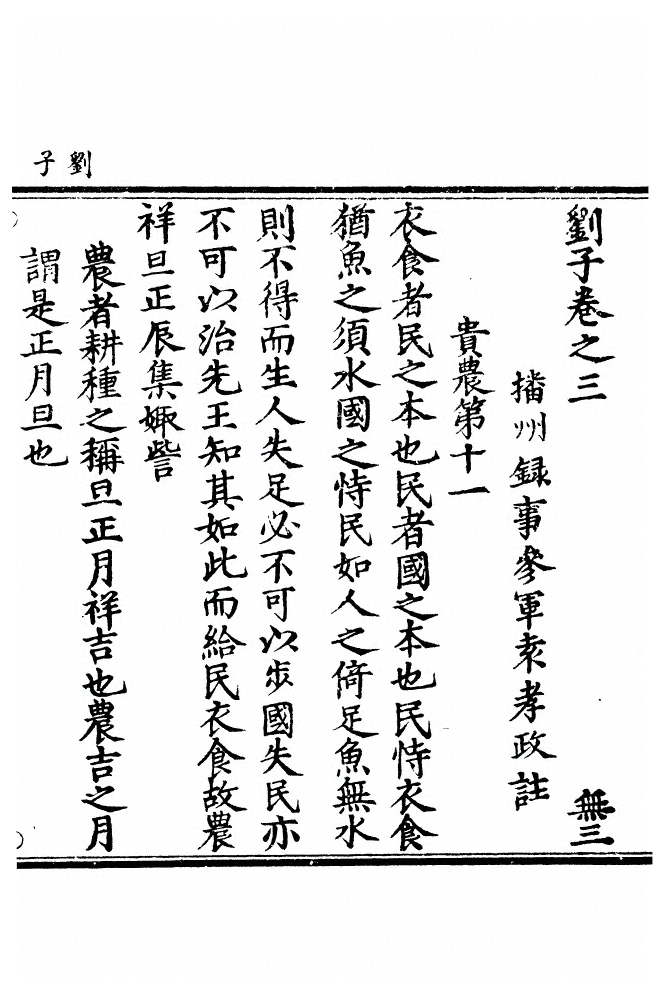 劉子
劉子卷之三 無三
播州録事參軍袁孝政註
貴農第十一
衣食者民之本也民者國之本也民恃衣食
猶魚之須水國之恃民如人之倚足魚無水
則不得而生人失足必不可以步國失民亦
不可以治先王知其如此而給民衣食故農
祥旦正辰集娵訾
農者耕種之稱旦正月祥吉也農吉之月
謂是正月旦也